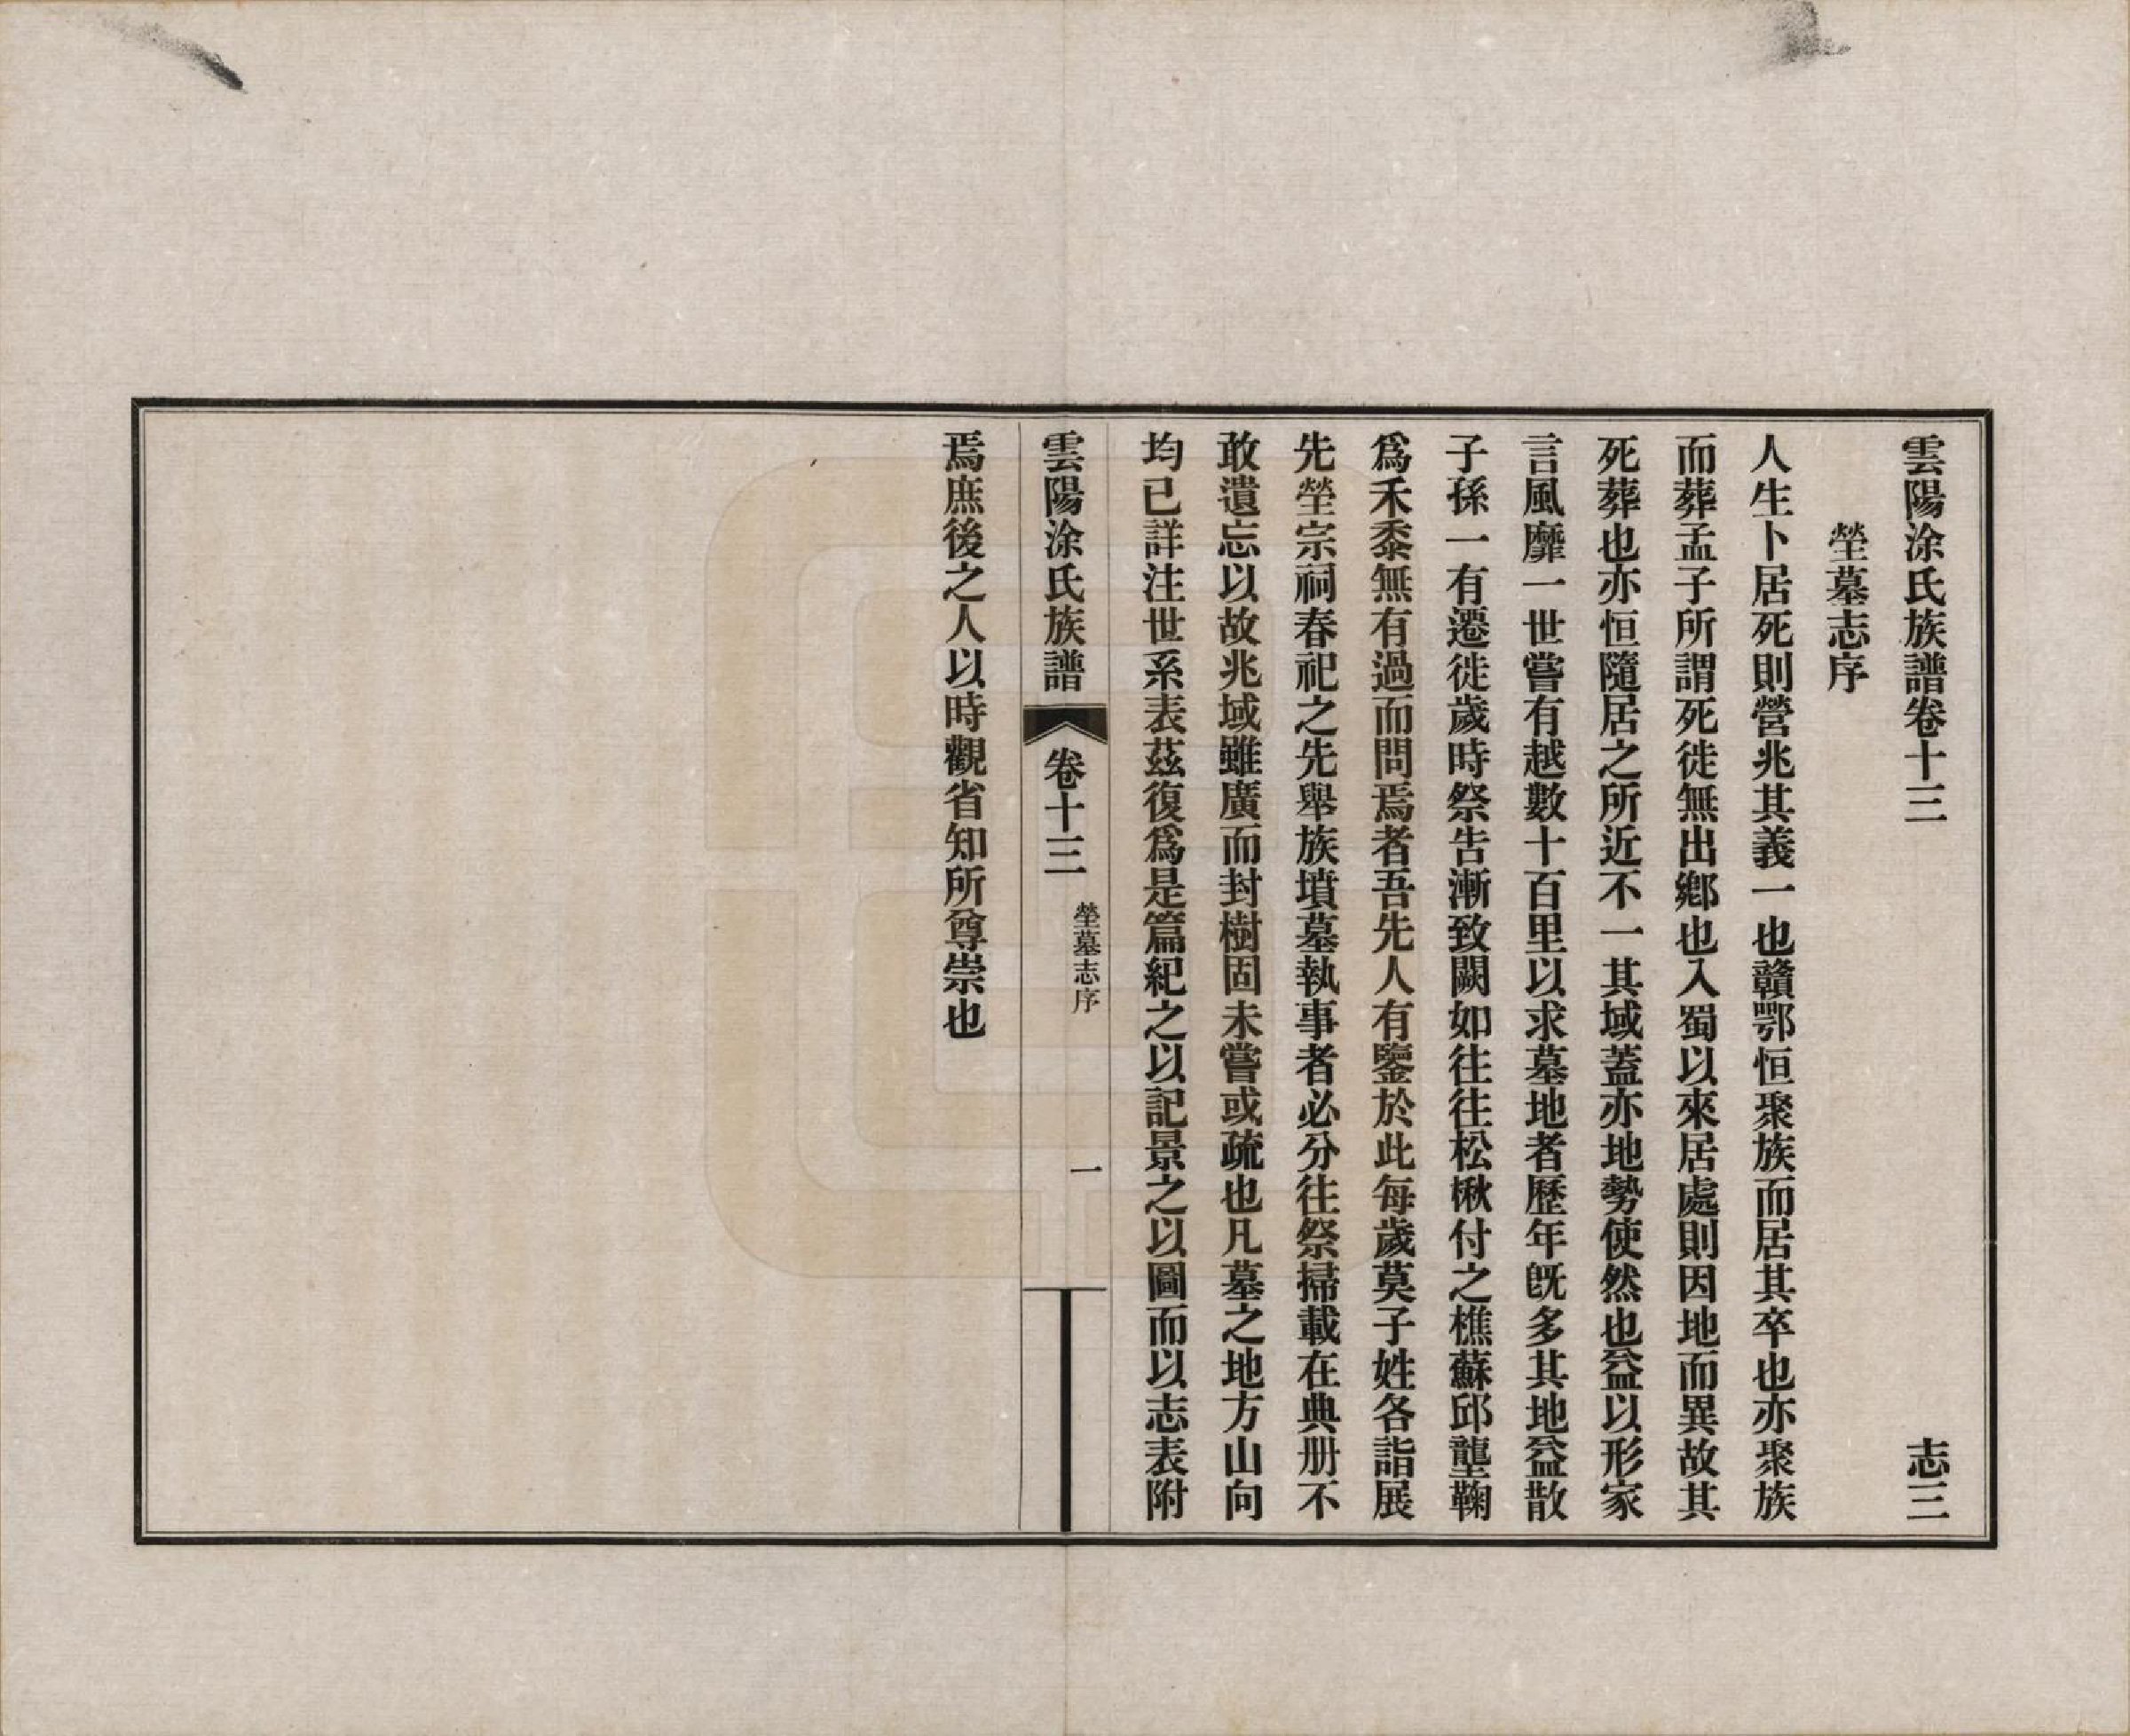 雲陽涂氏族譜卷十三　志三
塋墓志序
人生卜居死則營兆其義一也贛鄂恒聚族而居其卒也亦聚族
而葬孟子所謂死徙無出鄉也入蜀以來居處則因地而異故其
死葬也亦恒隨居之所近不一其域蓋亦地勢使然也益以形家
言風靡一世嘗有越數十百里以求墓地者歷年旣多其地益散
子孫一有遷徙歲時祭告漸致闕如往往松楸付之樵蘇邱壟鞠
爲禾黍無有過而問焉者吾先人有鑒於此每歲莫子姓各詣展
先塋宗祠春祀之先舉族墳墓執事者必分往祭掃載在典册不
敢遺忘以故兆域雖廣而封樹固未嘗或疏也凡墓之地方山向
均已詳注世系表茲復爲是篇紀之以記景之以圖而以志表附
雲陽涂氏族譜　卷十三　塋墓志序　一
焉庶後之人以時觀省知所尊崇也